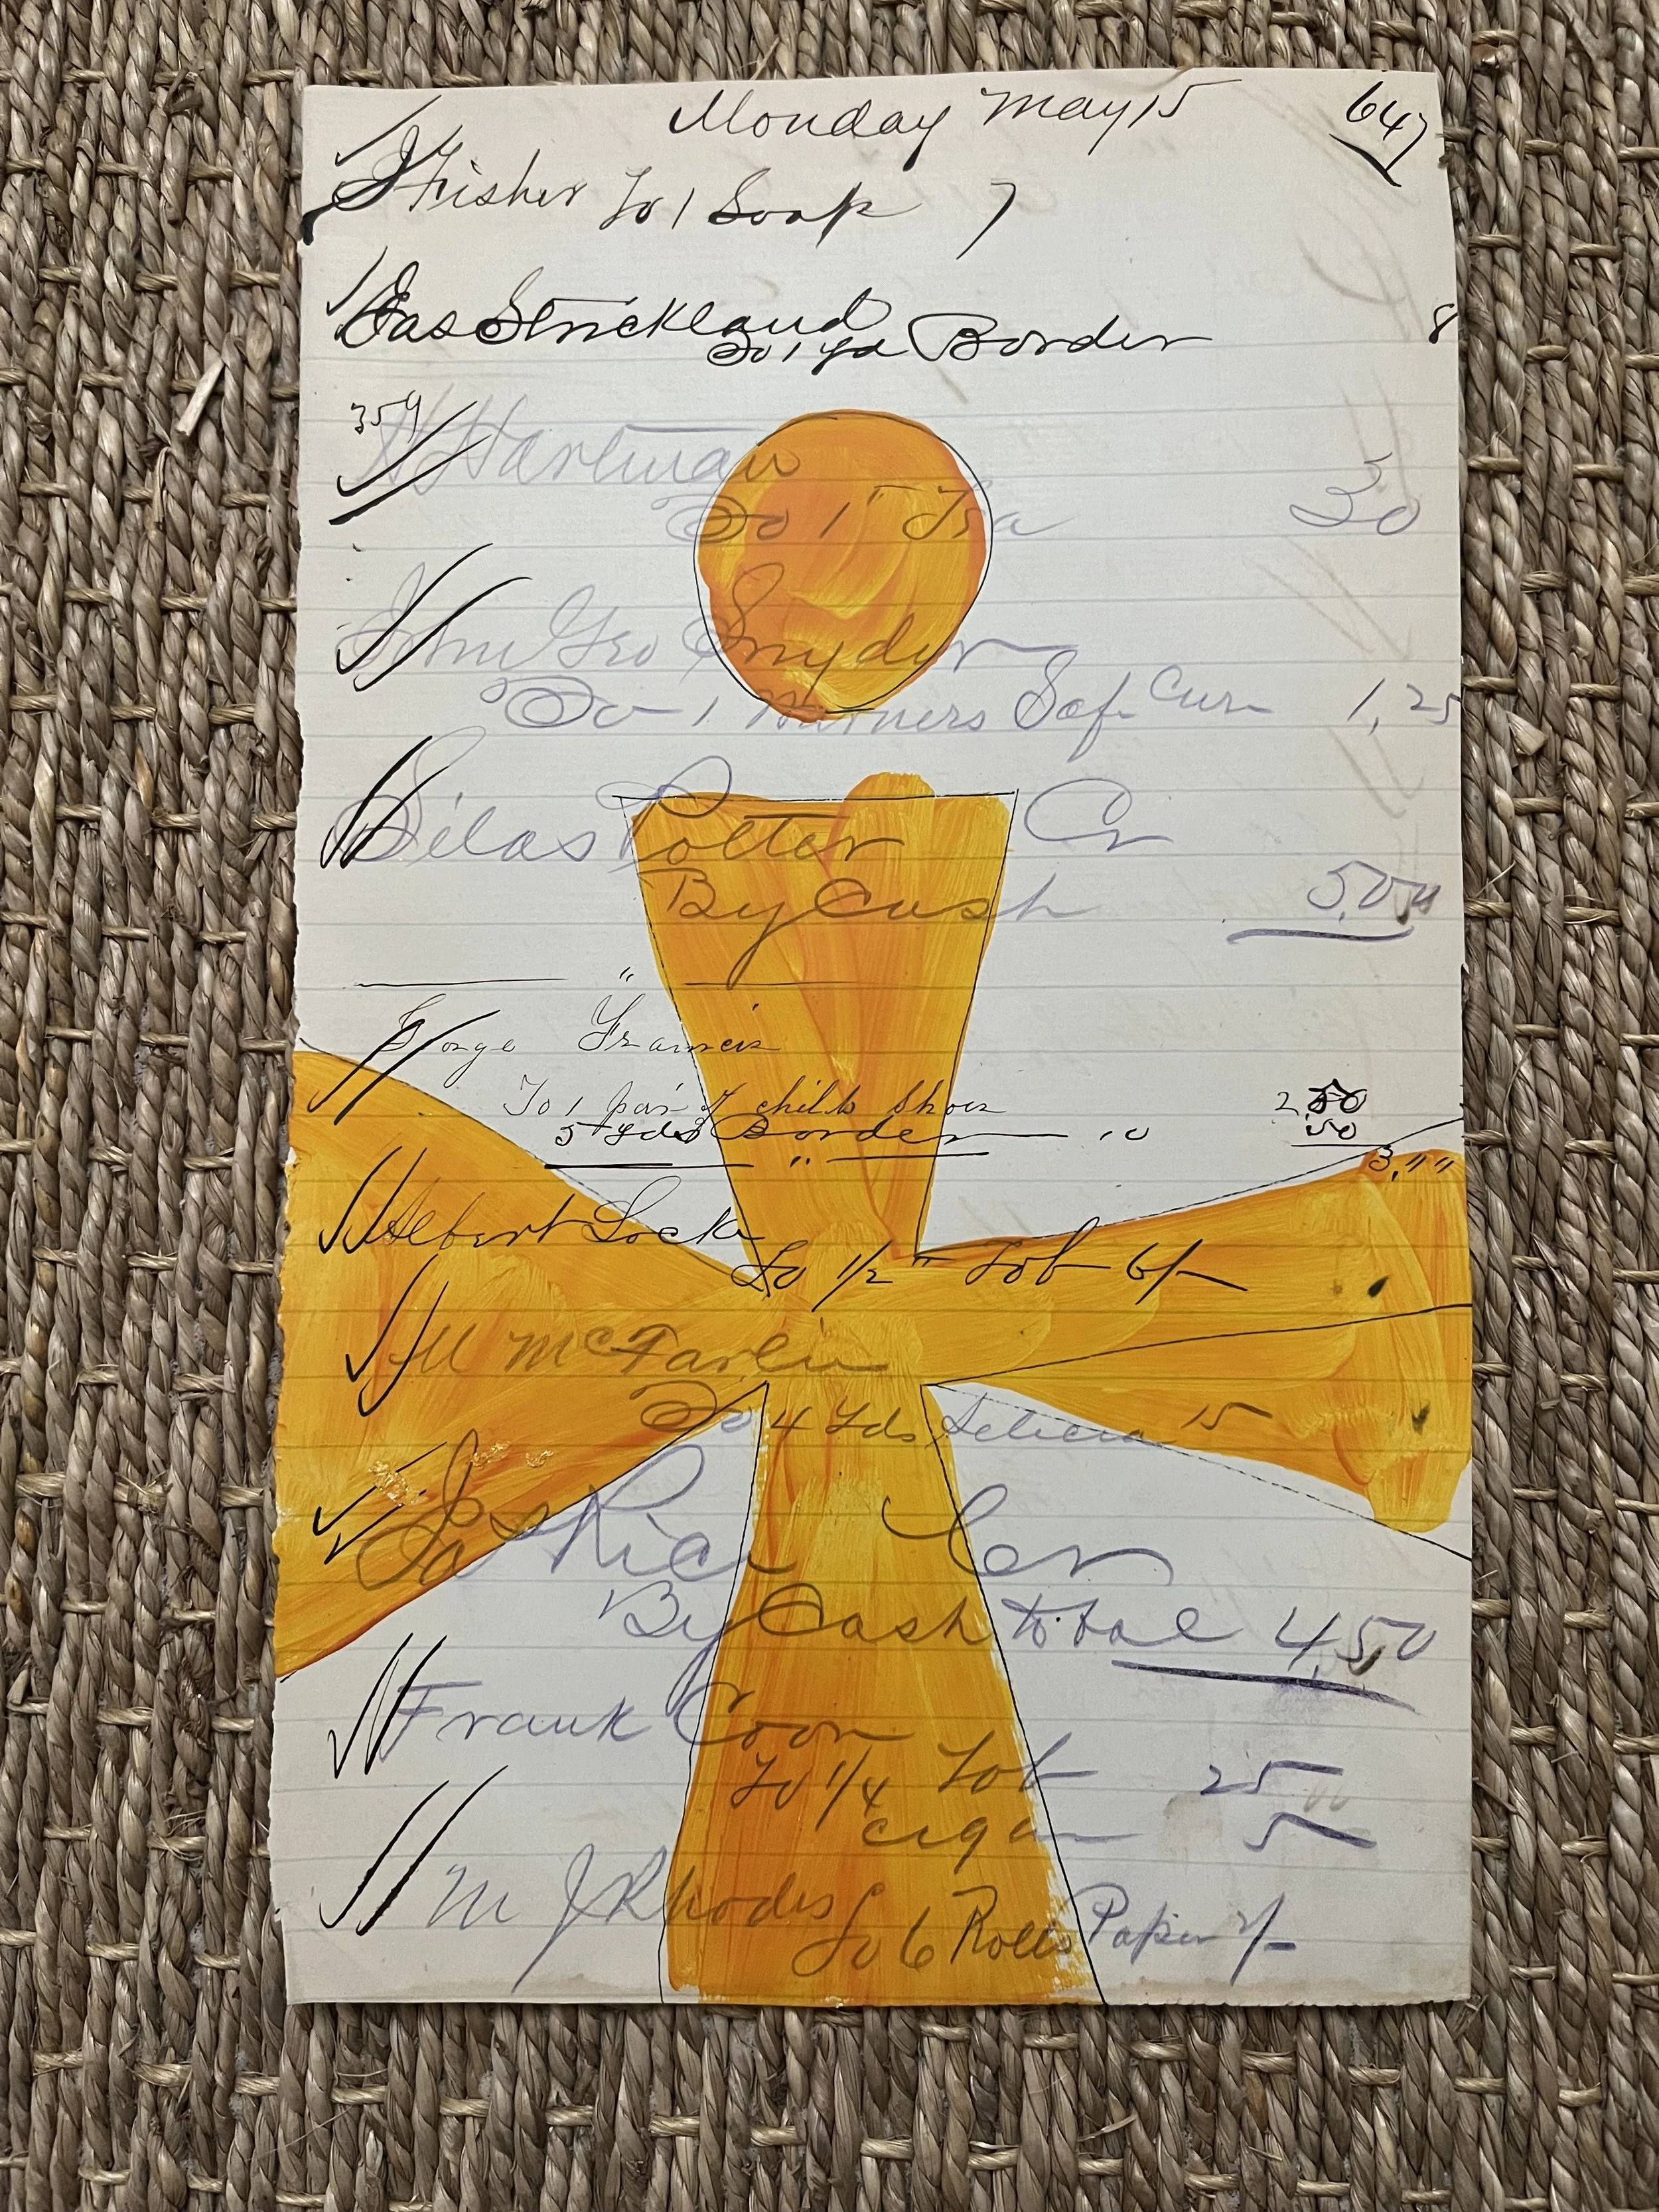 Monday May 15 647
J Fisher To 1 Soap 7
Jas Strickland
To 1 yd Border 8
359
Hartman
To 1 " Tea 30
Geo Snyder
To 1 Warners Safe Cure 1,25
Silas Potter Cr
By Cash 5,00
"
George Francis
To 1 pair childs Shoes 2.50
5 yds Border 10 50
" 3, " "
Albert Locke
To 1/2 " Tob 6/-
M McFarlin
To 4 Yds Selicia 15
Jas Rice Cr
By Cash total 4,50
Frank Coon
To 1/4 Tob 25
cigar 5
M J Rhodes
To 6 Rolls Paper 2/-